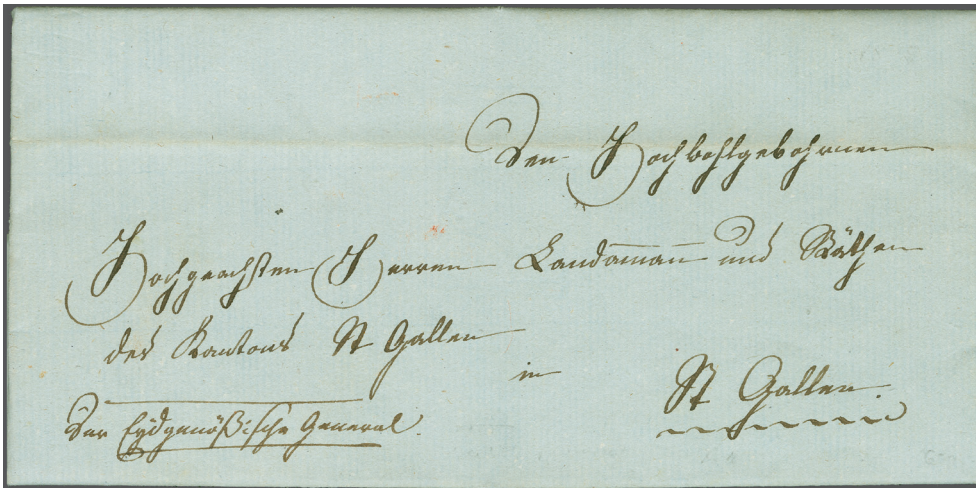 Den Hochwohlgebohrnen
Hochgeachten Herren Landamann und Räthen
des Kantons St Gallen
in
St Gallen
Der Eydgenößische General.